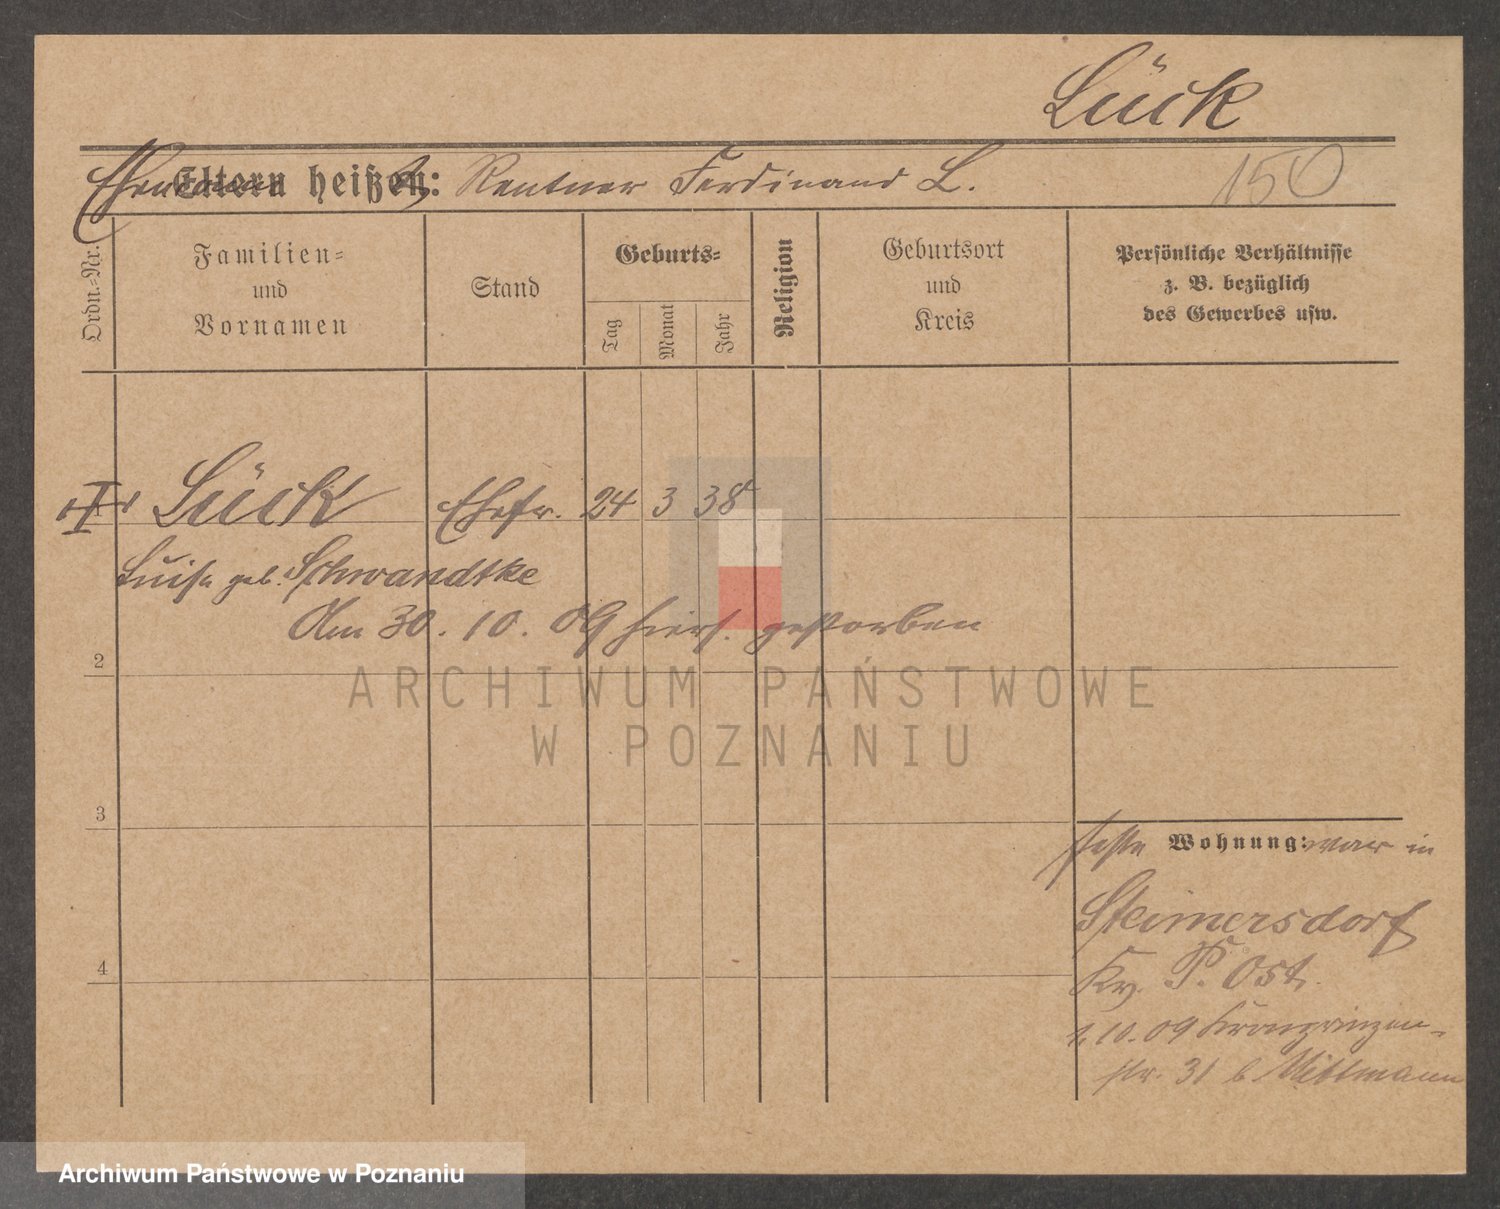 Lück
Eltern heißen: Rentner Ferdinand L.
150
Ordn.-Nr.
Familien-
und
Vornamen
Stand
Geburts-
Tag
Monat
Jahr
Religion
Geburtsort
und
Kreis
Persönliche Verhältnisse
z. B. bezüglich
des Gewerbes usw.
1
Lück Ehefr. 24 3 38
Luise geb. Schwandtke
Am 30. 10. 09 hiers. gestorben
2
ARCHIWUM PAŃSTWOWE
W POZNANIU
3
feste Wohnung: war in
Steimersdorf
Kr. P. Ost.
4
1.10.09 Kronprinzen-
str. 31 b Mittmann
Archiwum Państwowe w Poznaniu